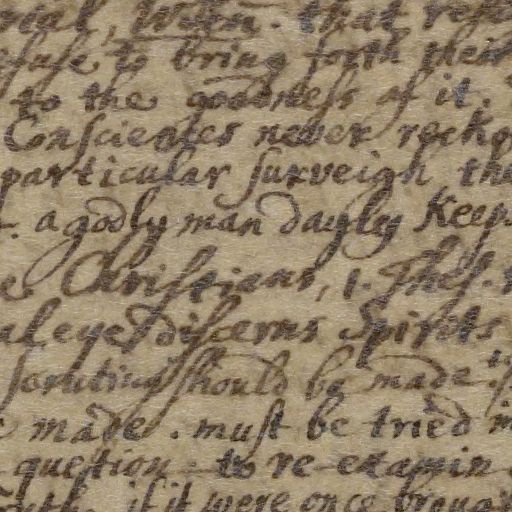 that
efuse to bring forth their
to the goodness of it.
Consciences never recko
particular surveigh the
. a godly man dayly Keep
e Christians, 1. Thes.
al eye discerns Spirits
scrutiny should be made
made. must be tried
question. to re-examin
if it were once brough